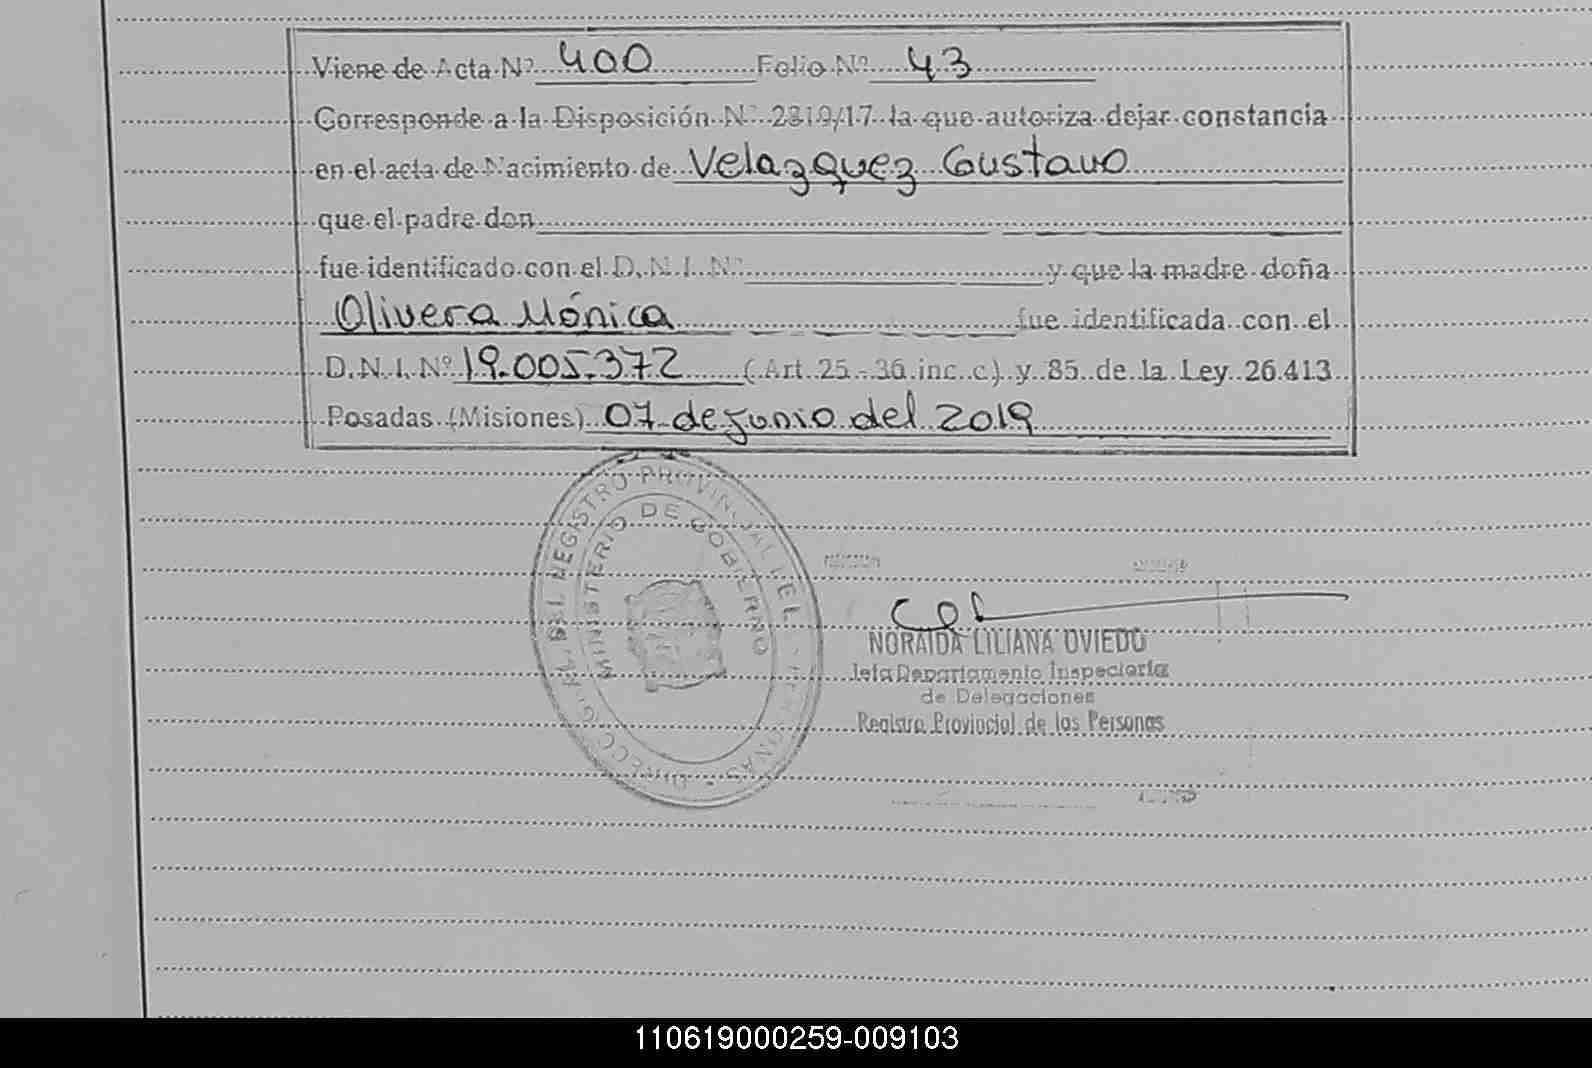 Viene de Acta Nº 400 Folio Nº 43
Corresponde a la Disposición Nº 2819/17 la que autoriza dejar constancia
en el acta de Nacimiento de Velazquez Gustavo
que el padre don
fue identificado con el D. N. I. Nº y que la madre doña
Olivera Mónica fue identificada con el
D. N. I. Nº 19.005.372 (Art. 25 - 36 inc. c.) y 85 de la Ley 26.413
Posadas (Misiones) 07 de junio del 2019
DEL REGISTRO PROVINCIAL DE
MINISTERIO DE GOBIERNO
NORAIDA LILIANA OVIEDO
Jefa Departamento Inspectoría
de Delegaciones
Registro Provincial de las Personas
110619000259-009103